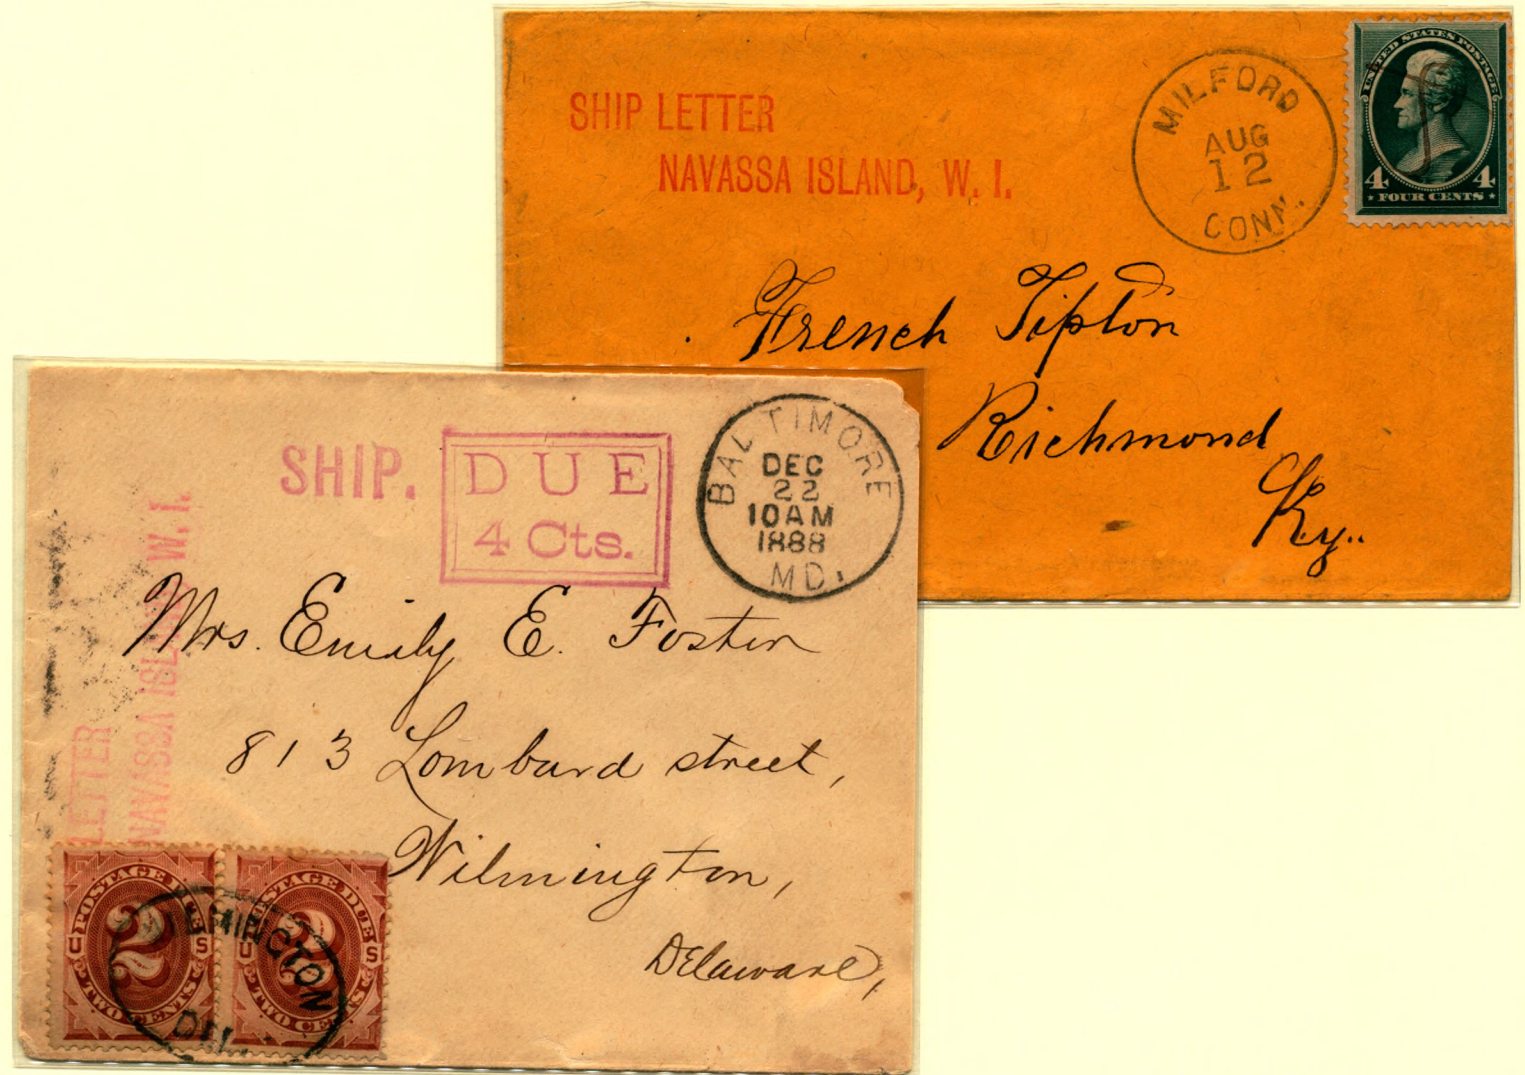 SHIP LETTER
NAVASSA ISLAND, W. I.
MILFORD
AUG
12
CONN.
UNITED STATES POSTAGE
4 4
FOUR CENTS
French Tipton
Richmond
Ky..
SHIP.
DUE
4 Cts.
BALTIMORE
DEC
22
10AM
1888
MD.
LETTER
NAVASSA ISLAND W. I.
Mrs. Emily E. Foster
813 Lombard street,
Wilmington,
Delaware,
POSTAGE DUE
U 2 S
TWO CENTS
POSTAGE DUE
U 2 S
TWO CENTS
WILMINGTON
DEL.